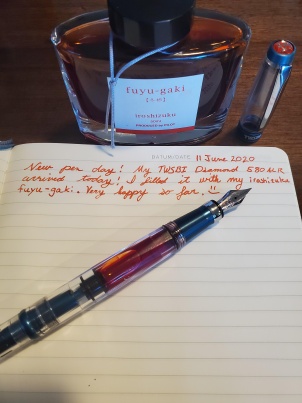 fuyu-gaki
[冬柿]
iroshizuku
DATUM/DATE: 11 June 2020
New pen day! My TWSBI Diamond 580 ALR
arrived today! I filled it with my iroshizuku
fuyu-gaki. Very happy so far. !!